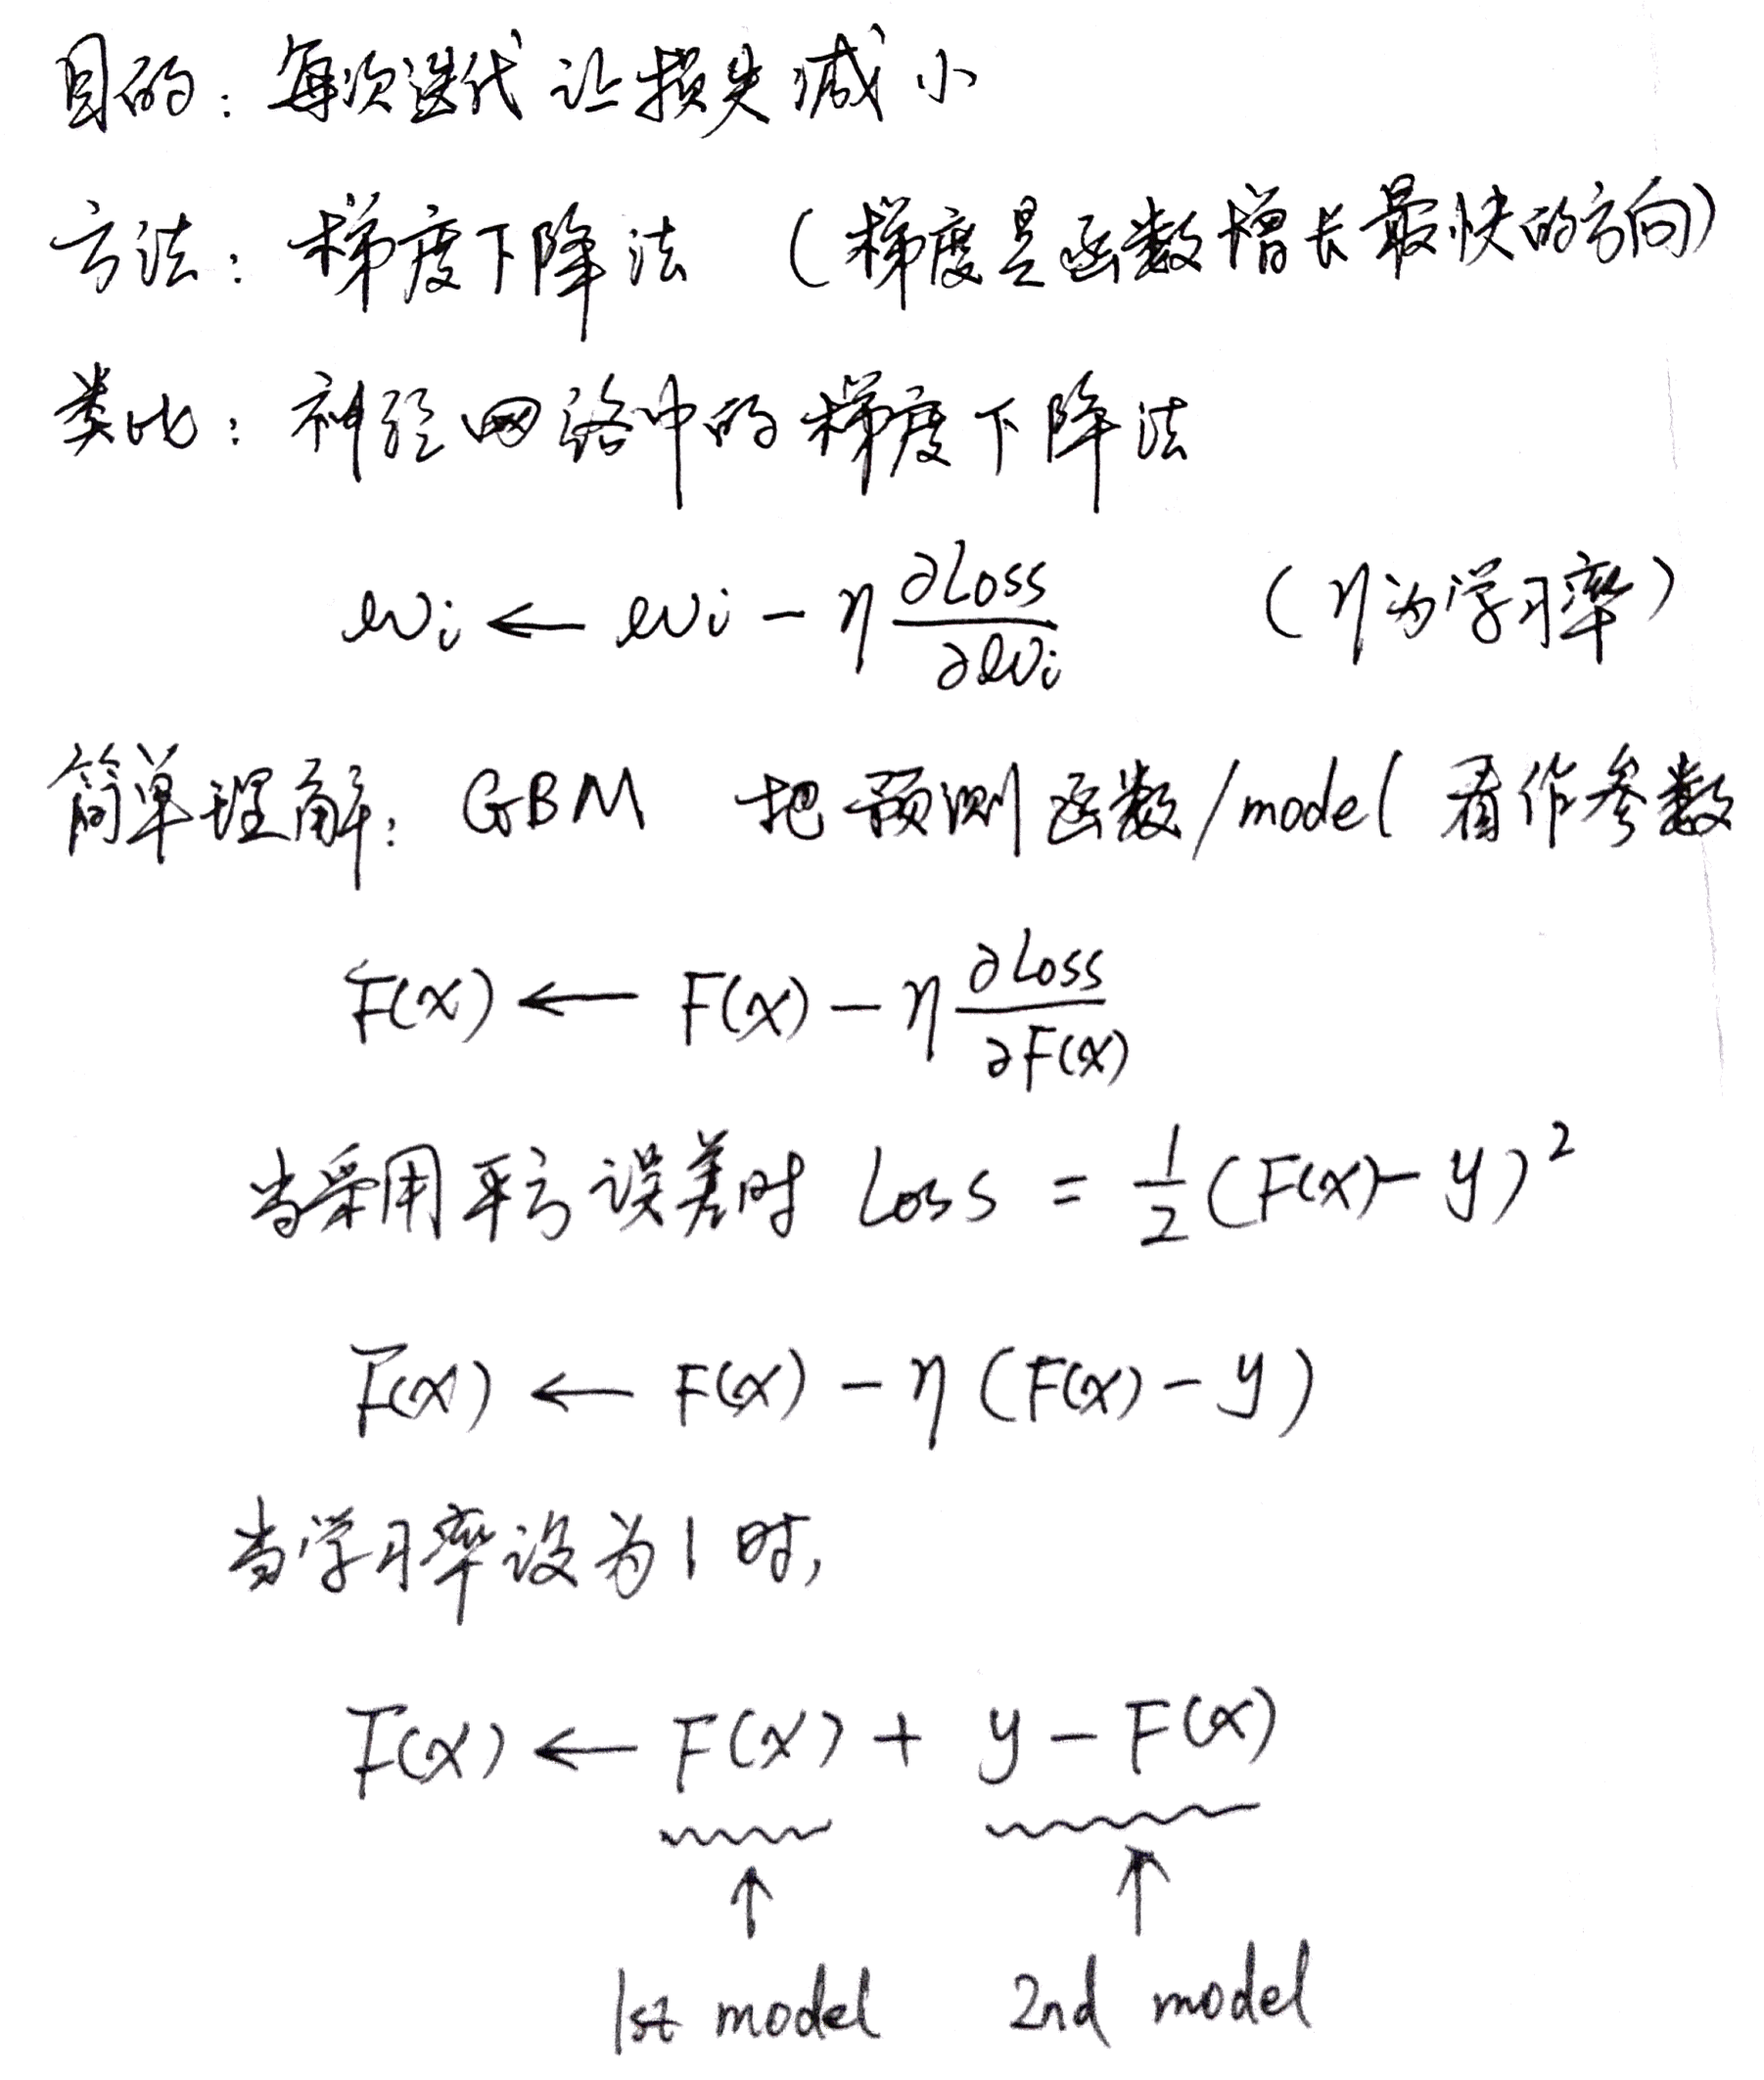 目的：每次迭代让损失减小
方法：梯度下降法 （梯度是函数增长最快的方向）
类比：神经网络中的梯度下降法
wi ← wi − η ∂Loss/∂wi （η为学习率）
简单理解：GBM 把预测函数/model 看作参数
F(x) ← F(x) − η ∂Loss/∂F(x)
当采用平方误差时 Loss = 1/2 (F(x) − y)²
F(x) ← F(x) − η (F(x) − y)
当学习率设为1时,
F(x) ← F(x) + y − F(x)
↑ ↑
1st model 2nd model